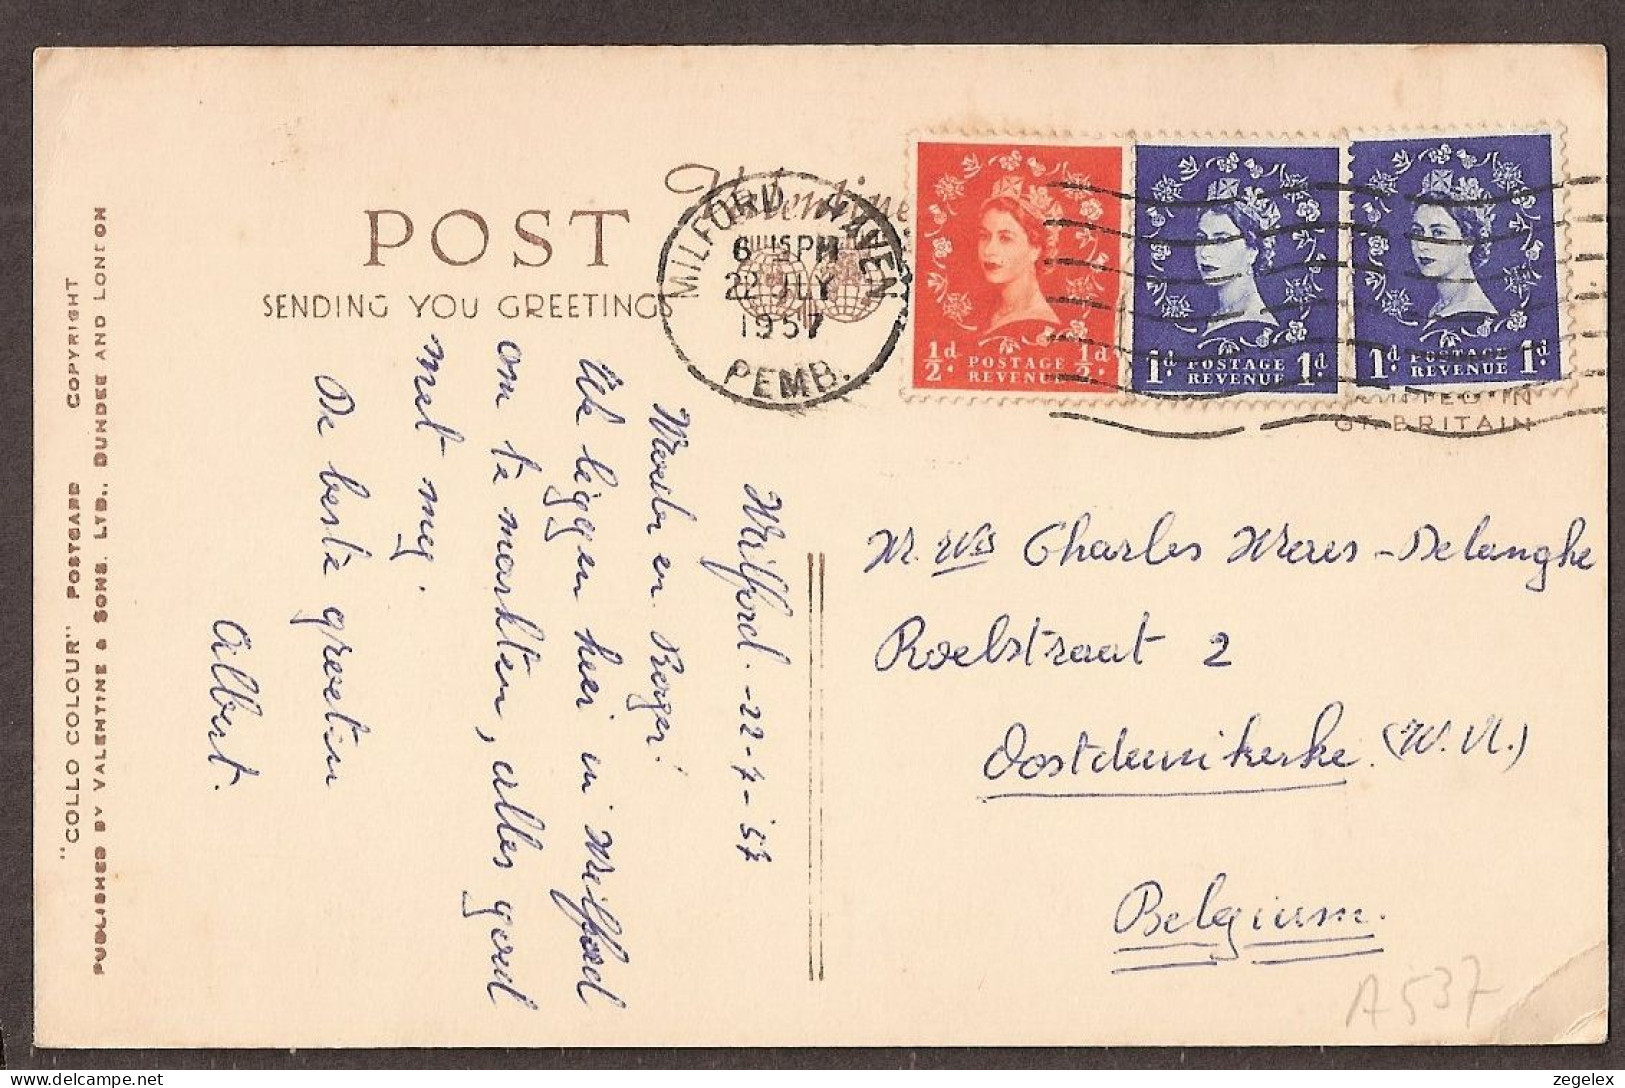 POST
SENDING YOU GREETINGS
Valentine's
MILFORD HAVEN
6 15 PM
22 JLY
1957
PEMB.
1/2 d. POSTAGE REVENUE 1/2 d.
1d. POSTAGE REVENUE 1d.
1d. POSTAGE REVENUE 1d.
GT. BRITAIN
"COLLO COLOUR" POSTCARD COPYRIGHT
PUBLISHED BY VALENTINE & SONS, LTD., DUNDEE AND LONDON
Milford. -22-7-57
Moeder en Roger!
We liggen hier in Milford
om te markten, alles goed
met mij.
De beste groeten
Albert.
M. Charles Maes-Delanghe
Roelstraat 2
Oostduinkerke (W. Vl.)
Belgium.
A537
zegelex